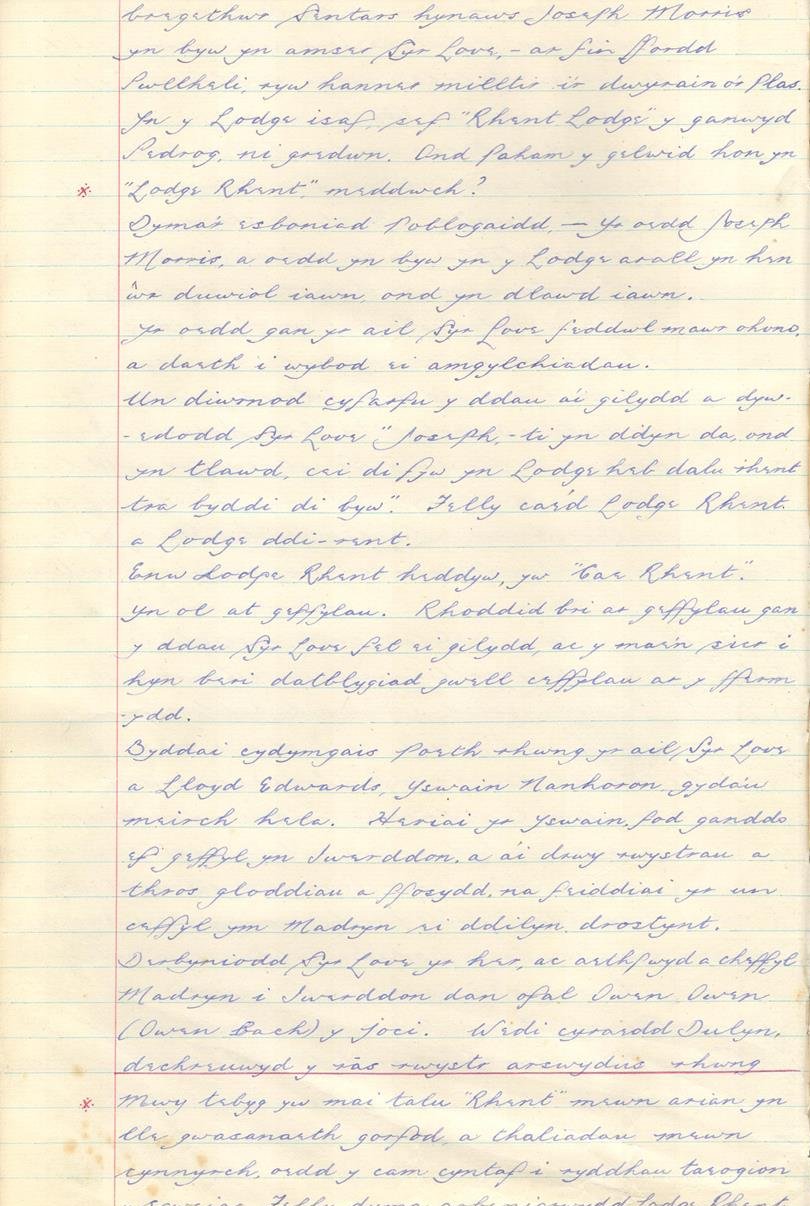 bregethwr Sentars hynaws Joseph Morris
yn byw yn amser Syr Love, - ar fin ffordd
Pwllheli, ryw hanner milltir i'r dwyrain o'r Plas.
Yn y Lodge isaf, sef "Rhent Lodge" y ganwyd
Pedrog, ni gredwn. Ond Paham y gelwid hon yn
x "Lodge Rhent", meddwch?
Dyma'r esboniad Poblogaidd, — Yr oedd Joseph
Morris, a oedd yn byw yn y Lodge arall yn hen
ŵr duwiol iawn, ond yn dlawd iawn.
Yr oedd gan yr ail Syr Love feddwl mawr ohono,
a daeth i wybod ei amgylchiadau.
Un diwrnod cyfarfu y ddau a'i gilydd a dyw-
-edodd Syr Love "Joseph, - ti yn ddyn da, ond
yn tlawd, cei di fyw yn Lodge heb dalu rhent
tra byddi di byw". Felly cae'd Lodge Rhent
a Lodge ddi-rent.
Enw Lodge Rhent heddyw, yw "Cae Rhent".
Yn ol at geffylau. Rhoddid bri ar geffylau gan
y ddau Syr Love fel ei gilydd, ac y mae'n sicr i
hyn beri datblygiad gwell ceffylau ar y fferm
-ydd.
Byddai cydymgais Poeth rhwng yr ail Syr Love
a Lloyd Edwards, Yswain Nanhoron, gyda'u
meirch hela. Heriai yr Yswain, fod ganddo
ef geffyl yn Iwerddon, a a'i drwy rwystrau a
thros gloddiau a ffosydd, na feiddiai yr un
ceffyl ym Madryn ei ddilyn drostynt.
Derbyniodd Syr Love yr her, ac aethpwyd a cheffyl
Madryn i Iwerddon dan ofal Owen Owen
(Owen Bach) y joci. Wedi cyraedd Dulyn,
dechreuwyd y râs rwystr arswydus rhwng
x Mwy tebyg yw mai talu "Rhent" mewn arian yn
lle gwasanaeth gorfod, a thaliadau mewn
cynnyrch, oedd y cam cyntaf i ryddhau taeogion
Felly dyma Lodge Rhent